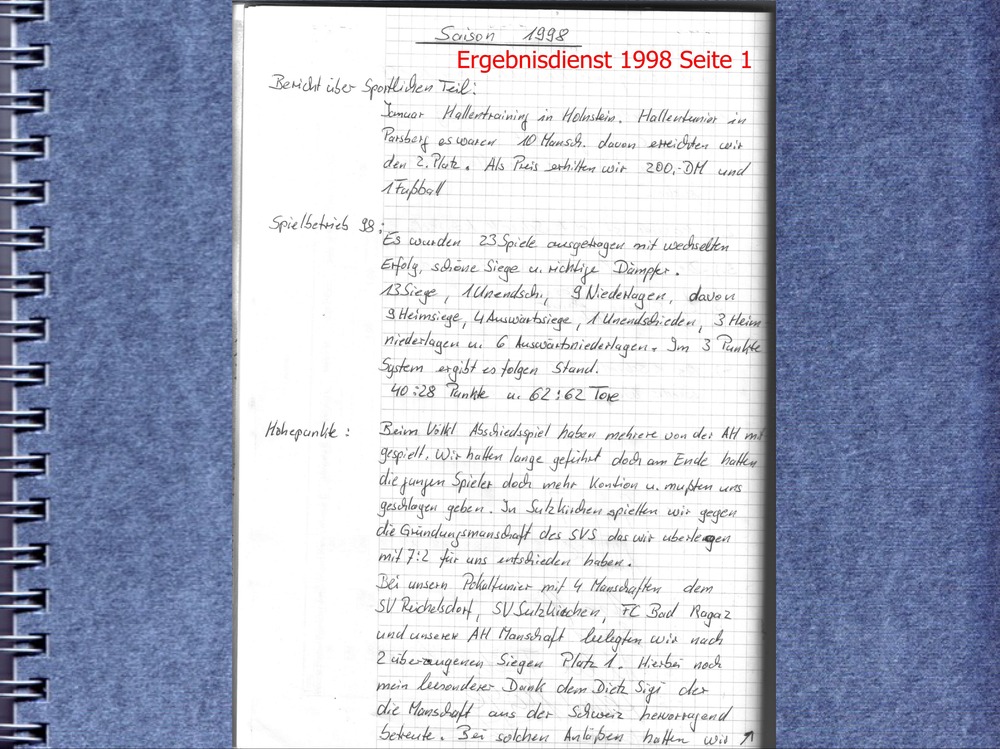 Saison 1998
Ergebnisdienst 1998 Seite 1
Bericht über Sportlichen Teil:
Januar Hallentraining in Holnstein. Hallenturnier in
Parsberg es waren 10 Mansch. davon erreichten wir
den 2. Platz. Als Preis erhilten wir 200,-DM und
1 Fußball
Spielbetrieb 98:
Es wurden 23 Spiele ausgetragen mit wechselten
Erfolg, schöne Siege u. richtige Dämpfer.
13 Siege, 1 Unendsch., 9 Niederlagen, davon
9 Heimsiege, 4 Auswärtsiege, 1 Unendschieden, 3 Heim
niederlagen u. 6 Auswärtsniederlagen. Im 3 Punkte
System ergibt es folgen Stand.
40:28 Punkte u. 62:62 Tore
Höhepunkte:
Beim Völkl Abschiedsspiel haben mehrere von der AH mit
gespielt. Wir hatten lange geführt doch am Ende hatten
die jungen Spieler doch mehr Kontion u. mußten uns
geschlagen geben. In Sulzkirchen spielten wir gegen
die Gründungsmanschaft des SVS das wir überlegen
mit 7:2 für uns entschieden haben.
Bei unsern Pokalturnier mit 4 Manschaften dem
SV Reichelsdorf, SV Sulzkirchen, FC Bad Ragaz
und unserer AH Manschaft belegten wir nach
2 überzeugenen Siegen Platz 1. Hierbei noch
mein besonderer Dank dem Dietz Sigi der
die Manschaft aus der Schweiz hervorragend
betreute. Bei solchen Anläßen hatten wir